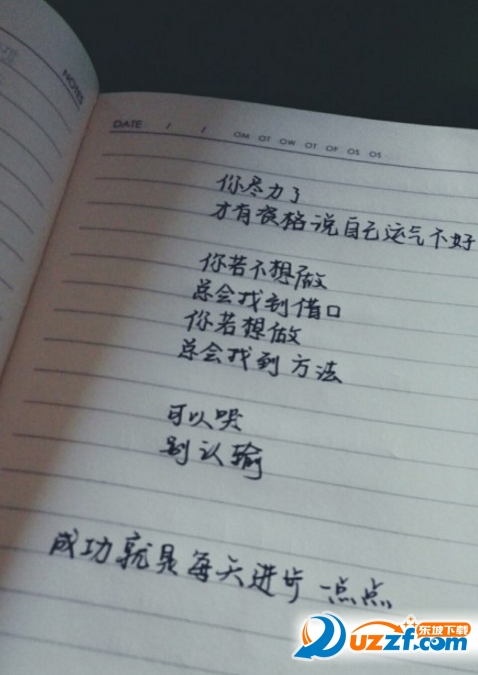 NOTES
DATE / /
OM OT OW OT OF OS OS
你尽力了
才有资格说自己运气不好
你若不想做
总会找到借口
你若想做
总会找到方法
可以哭
别认输
成功就是每天进步一点点
东坡下载
uzzf.com